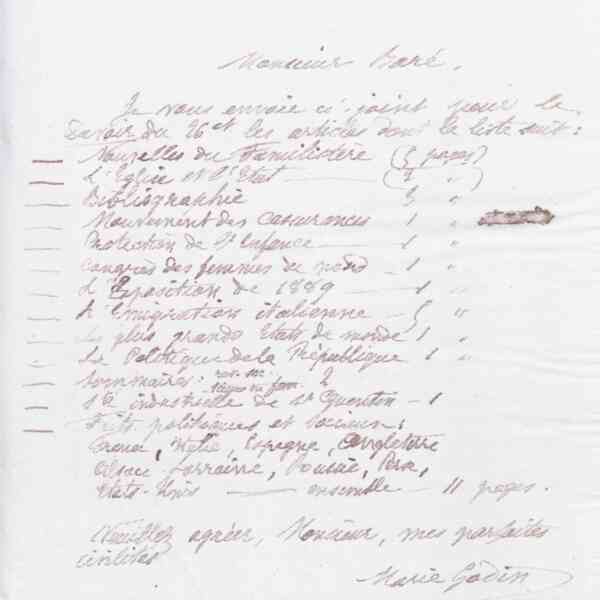 Monsieur Baré,
Je vous envoie ci-joint pour le
Devoir du 26 ct les articles dont la liste suit :
Nouvelles du Familistère (5 pages)
L'Eglise et l'Etat — (7 " )
Bibliographie 3 "
Mouvement des assurances 1 "
Protection de l'Enfance — 1 "
Congrès des femmes du nord — 1 "
L'Exposition de 1889 — 1 "
L'Emigration italienne — 5 "
Les plus grands Etats du monde 1 "
La Politique de la République 1 "
Sommaires : 2
Sté industrielle de St Quentin — 1
Faits politiques et sociaux :
Italie, Espagne, Angleterre
Alsace-Lorraine, Russie,
Etats-Unis — ensemble — 11 pages.
Veuillez agréer, Monsieur, mes parfaites
civilités
Marie Godin